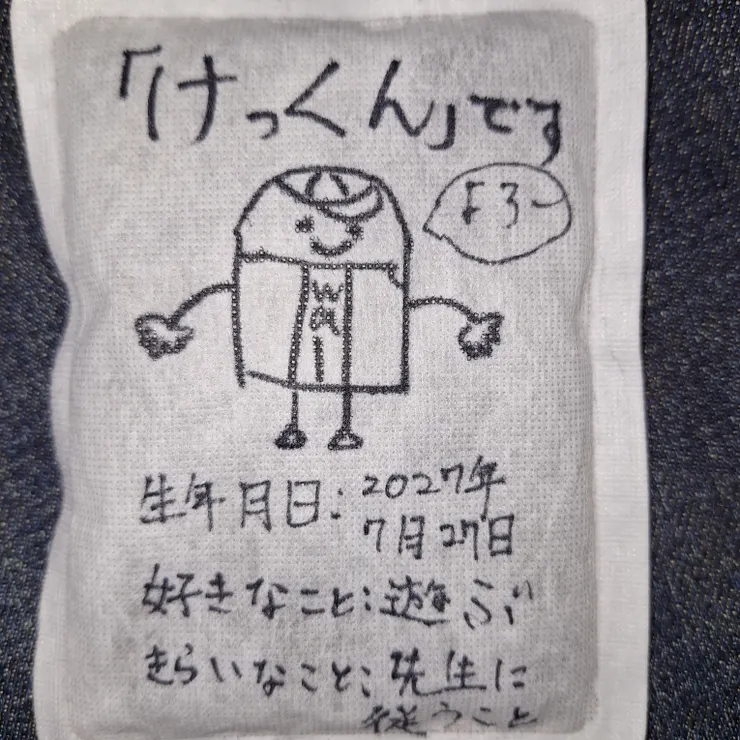 「けっくん」です
よろ〜
生年月日:2027年
7月27日
好きなこと:遊ぶ
きらいなこと:先生に
従うこと